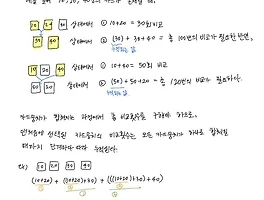 10 20 40 상태에서 ① 10+20 = 30회 비교
30 40 상태에서 ② (30) + 30+40 = 총 100번의 비교가 필요한 반면,
10 20 40 상태에서 ① 10+40 = 50회 비교
50 20 상태에서 ② (50) + 50+20 = 총 120번의 비교가 필요하다.
카드뭉치가 합쳐지는 과정에서 총 비교횟수를 구해야 하므로,
선택된 카드뭉치의 비교횟수는 모든 카드뭉치가 하나로 합쳐질
때까지 단계마다 누적된다.
ex) 10 20 30 40
(10+20) + ((10+20)+30) + (((10+20)+30)+40)
① ② ③